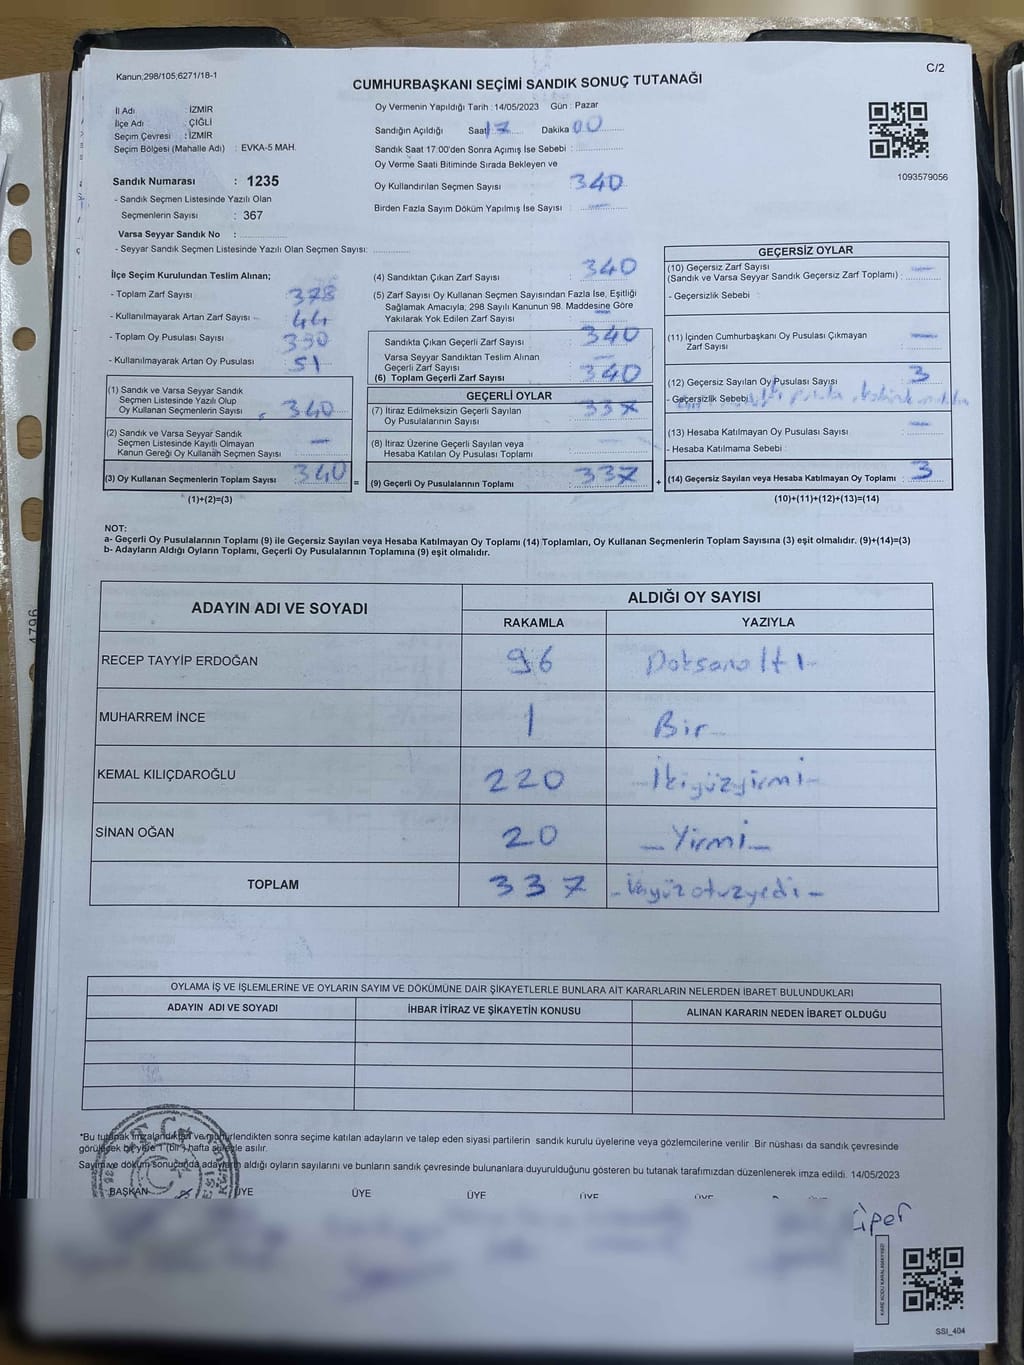 Kanun,298/105,6271/18-1
C/2
CUMHURBAŞKANI SEÇİMİ SANDIK SONUÇ TUTANAĞI
İl Adı : İZMİR
İlçe Adı : ÇİĞLİ
Seçim Çevresi : İZMİR
Seçim Bölgesi (Mahalle Adı) : EVKA-5 MAH.
Sandık Numarası : 1235
- Sandık Seçmen Listesinde Yazılı Olan
Seçmenlerin Sayısı : 367
Varsa Seyyar Sandık No :
- Seyyar Sandık Seçmen Listesinde Yazılı Olan Seçmen Sayısı:
Oy Vermenin Yapıldığı Tarih : 14/05/2023 Gün : Pazar
Sandığın Açıldığı Saat 17 Dakika 00
Sandık Saat 17:00'den Sonra Açımış İse Sebebi :
Oy Verme Saati Bitiminde Sırada Bekleyen ve
Oy Kullandırılan Seçmen Sayısı : 340
Birden Fazla Sayım Döküm Yapılmış İse Sayısı : —
1093579056
İlçe Seçim Kurulundan Teslim Alınan;
- Toplam Zarf Sayısı : 378
- Kullanılmayarak Artan Zarf Sayısı 44
- Toplam Oy Pusulası Sayısı : 390
- Kullanılmayarak Artan Oy Pusulası : 51
(1) Sandık ve Varsa Seyyar Sandık
Seçmen Listesinde Yazılı Olup
Oy Kullanan Seçmenlerin Sayısı : 340
(2) Sandık ve Varsa Seyyar Sandık
Seçmen Listesinde Kayıtlı Olmayan
Kanun Gereği Oy Kullanan Seçmen Sayısı : —
(3) Oy Kullanan Seçmenlerin Toplam Sayısı 340
(1)+(2)=(3)
=
(4) Sandıktan Çıkan Zarf Sayısı : 340
(5) Zarf Sayısı Oy Kullanan Seçmen Sayısından Fazla İse, Eşitliği
Sağlamak Amacıyla; 298 Sayılı Kanunun 98. Maddesine Göre
Yakılarak Yok Edilen Zarf Sayısı :
Sandıkta Çıkan Geçerli Zarf Sayısı : 340
Varsa Seyyar Sandıktan Teslim Alınan
Geçerli Zarf Sayısı : —
(6) Toplam Geçerli Zarf Sayısı : 340
GEÇERLİ OYLAR
(7) İtiraz Edilmeksizin Geçerli Sayılan : 337
Oy Pusulalarının Sayısı
(8) İtiraz Üzerine Geçerli Sayılan veya
Hesaba Katılan Oy Pusulası Toplamı : —
(9) Geçerli Oy Pusulalarının Toplamı : 337
+
GEÇERSİZ OYLAR
(10) Geçersiz Zarf Sayısı
(Sandık ve Varsa Seyyar Sandık Geçersiz Zarf Toplamı) : —
- Geçersizlik Sebebi :
(11) İçinden Cumhurbaşkanı Oy Pusulası Çıkmayan : —
Zarf Sayısı
(12) Geçersiz Sayılan Oy Pusulası Sayısı : 3
- Geçersizlik Sebebi
(13) Hesaba Katılmayan Oy Pusulası Sayısı : —
- Hesaba Katılmama Sebebi :
(14) Geçersiz Sayılan veya Hesaba Katılmayan Oy Toplamı : 3
(10)+(11)+(12)+(13)=(14)
NOT:
a- Geçerli Oy Pusulalarının Toplamı (9) ile Geçersiz Sayılan veya Hesaba Katılmayan Oy Toplamı (14) Toplamları, Oy Kullanan Seçmenlerin Toplam Sayısına (3) eşit olmalıdır. (9)+(14)=(3)
b- Adayların Aldığı Oyların Toplamı, Geçerli Oy Pusulalarının Toplamına (9) eşit olmalıdır.
ADAYIN ADI VE SOYADI
ALDIĞI OY SAYISI
RAKAMLA YAZIYLA
RECEP TAYYİP ERDOĞAN 96 Doksanaltı
MUHARREM İNCE 1 Bir
KEMAL KILIÇDAROĞLU 220 İkiyüzyirmi
SİNAN OĞAN 20 Yirmi
TOPLAM 337 otuzyedi
OYLAMA İŞ VE İŞLEMLERİNE VE OYLARIN SAYIM VE DÖKÜMÜNE DAİR ŞİKAYETLERLE BUNLARA AİT KARARLARIN NELERDEN İBARET BULUNDUKLARI
ADAYIN ADI VE SOYADI İHBAR İTİRAZ VE ŞİKAYETİN KONUSU ALINAN KARARIN NEDEN İBARET OLDUĞU
*Bu tutanak imzalandıktan ve mühürlendikten sonra seçime katılan adayların ve talep eden siyasi partilerin sandık kurulu üyelerine veya gözlemcilerine verilir. Bir nüshası da sandık çevresinde
görülecek bir yere 1 (bir) hafta süreyle asılır.
Sayım ve döküm sonucunda adayların aldığı oyların sayılarını ve bunların sandık çevresinde bulunanlara duyurulduğunu gösteren bu tutanak tarafımızdan düzenlenerek imza edildi. 14/05/2023
BAŞKAN ÜYE ÜYE ÜYE ÜYE ÜYE
SSI_404
4796